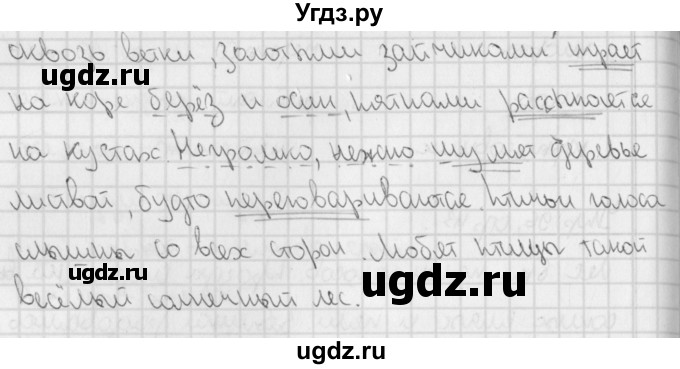 Угдз.ру
сквозь ветки, золотыми зайчиками играет
на коре берёз и осин, пятнами рассыпается
на кустах. Негромко, нежно шумят деревья
листвой, будто переговариваются. Птичьи голоса
слышны со всех сторон. Любят птицы такой
весёлый солнечный лес.
ugdz.ru
ugdz.ru
ugdz.ru
ugdz.ru
ugdz.ru
ugdz.ru